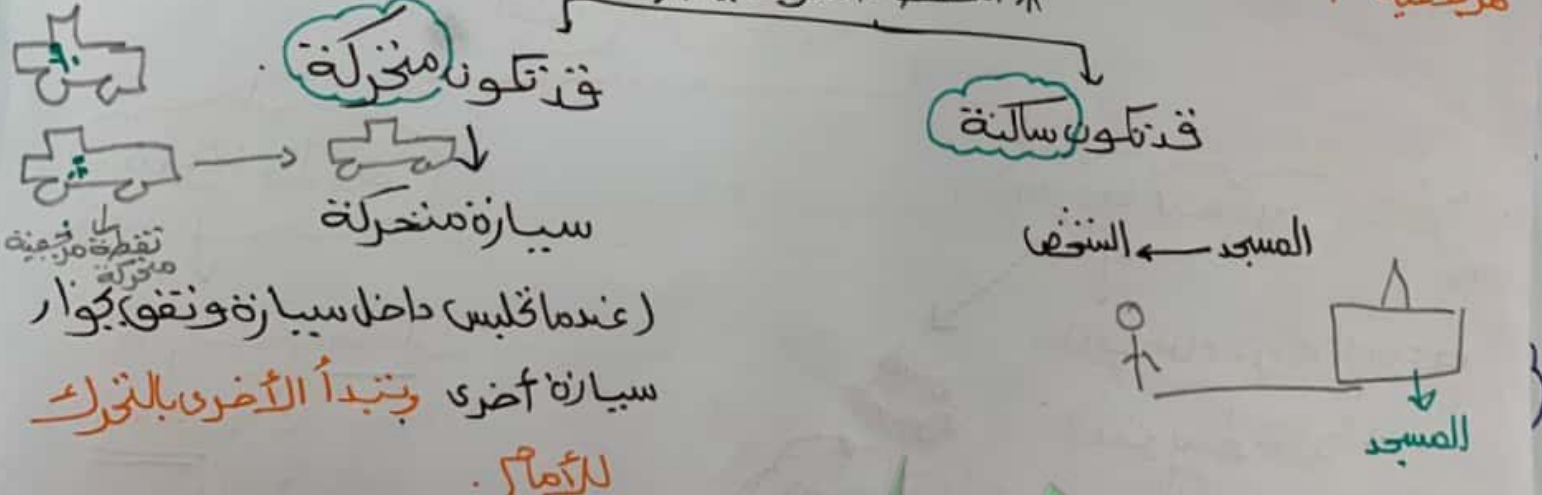 قد تكون متحركة
قد تكون ساكنة
سيارة متحركة
نقطة مرجعية
متحركة
المسجد ← الشخص
المسجد
(عندما تجلس داخل سيارة وتقف بجوار
سيارة أخرى وتبدأ الأخرى بالتحرك
للأمام.